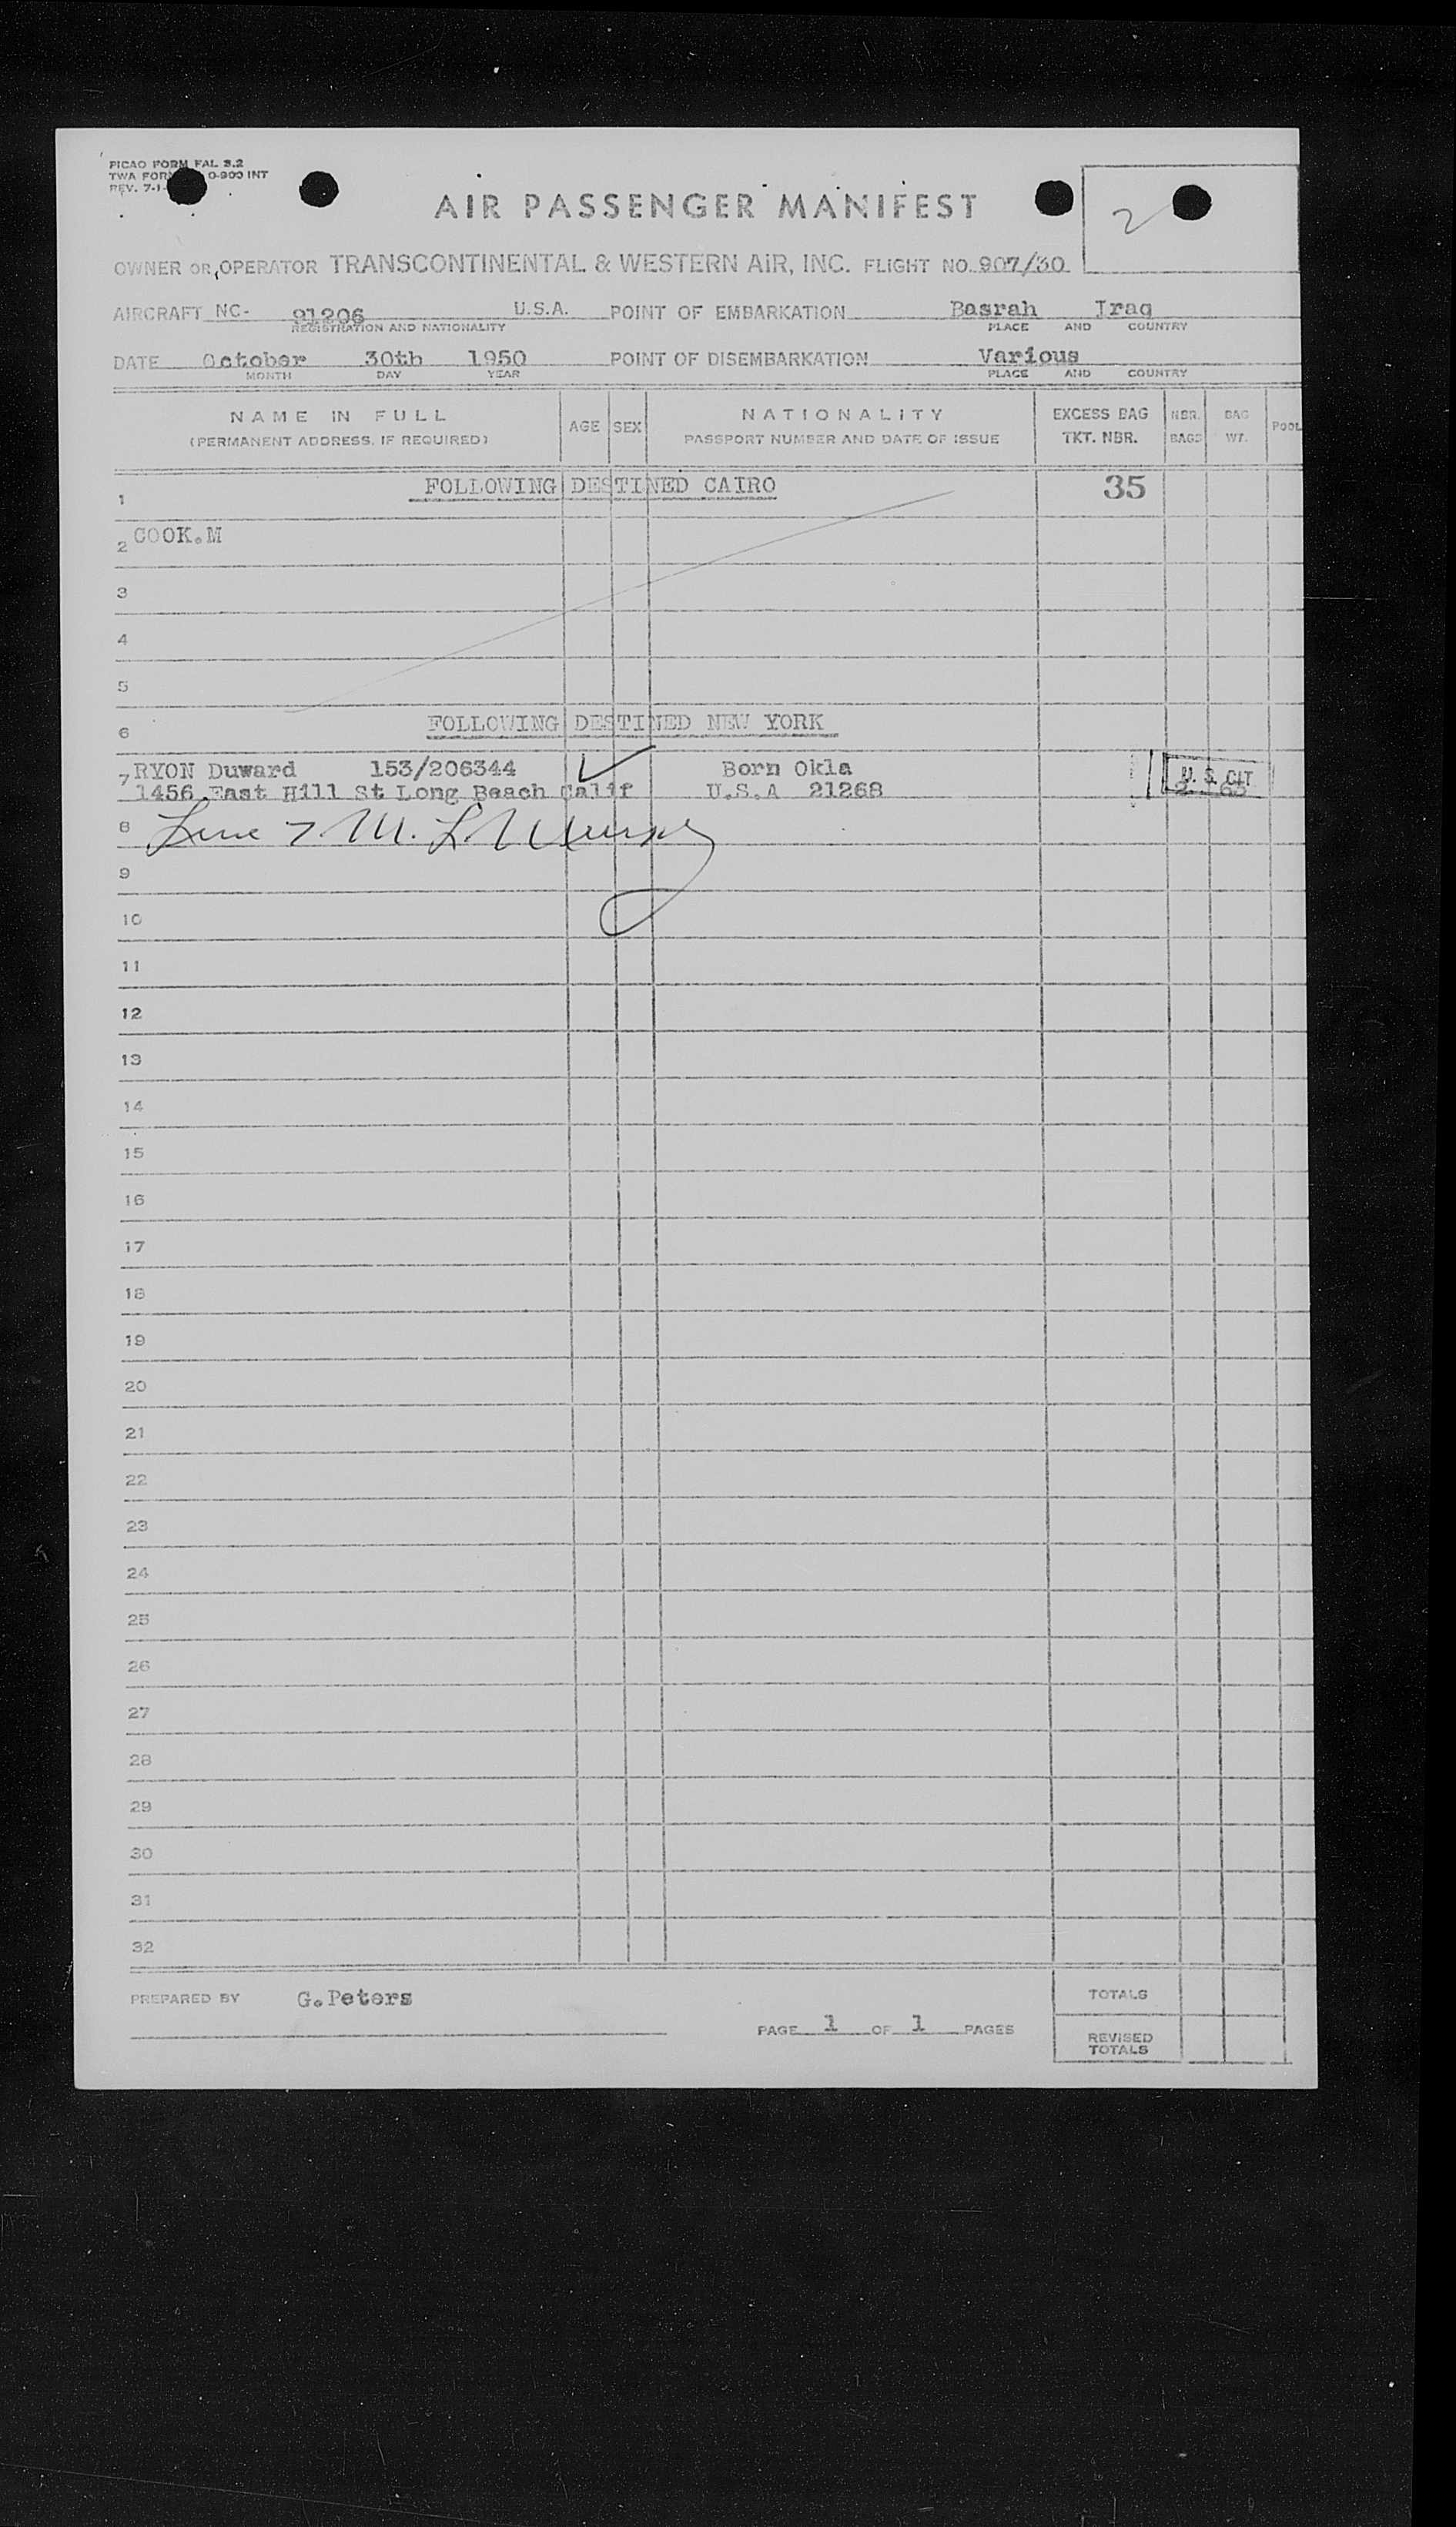 PICAO FORM FAL 3.2
TWA FORM 0-900 INT
REV. 7-1-
AIR PASSENGER MANIFEST
2
OWNER OR OPERATOR TRANSCONTINENTAL & WESTERN AIR, INC. FLIGHT NO. 907/30
AIRCRAFT NC- 91206 U.S.A. POINT OF EMBARKATION Basrah Iraq
REGISTRATION AND NATIONALITY PLACE AND COUNTRY
DATE October 30th 1950 POINT OF DISEMBARKATION Various
MONTH DAY YEAR PLACE AND COUNTRY
NAME IN FULL AGE SEX NATIONALITY EXCESS BAG NBR. BAG POOL
(PERMANENT ADDRESS, IF REQUIRED) PASSPORT NUMBER AND DATE OF ISSUE TKT. NBR. BAGS WT.
1 FOLLOWING DESTINED CAIRO 35
2 COOK.M
3
4
5
6 FOLLOWING DESTINED NEW YORK
7 RYON Duward 153/206344 Born Okla U.S. CIT
1456 East Hill St Long Beach Calif U.S.A 21268
8 Line 7 M. L. Murphy
9
10
11
12
13
14
15
16
17
18
19
20
21
22
23
24
25
26
27
28
29
30
31
32
PREPARED BY G.Peters TOTALS
PAGE 1 OF 1 PAGES REVISED
TOTALS